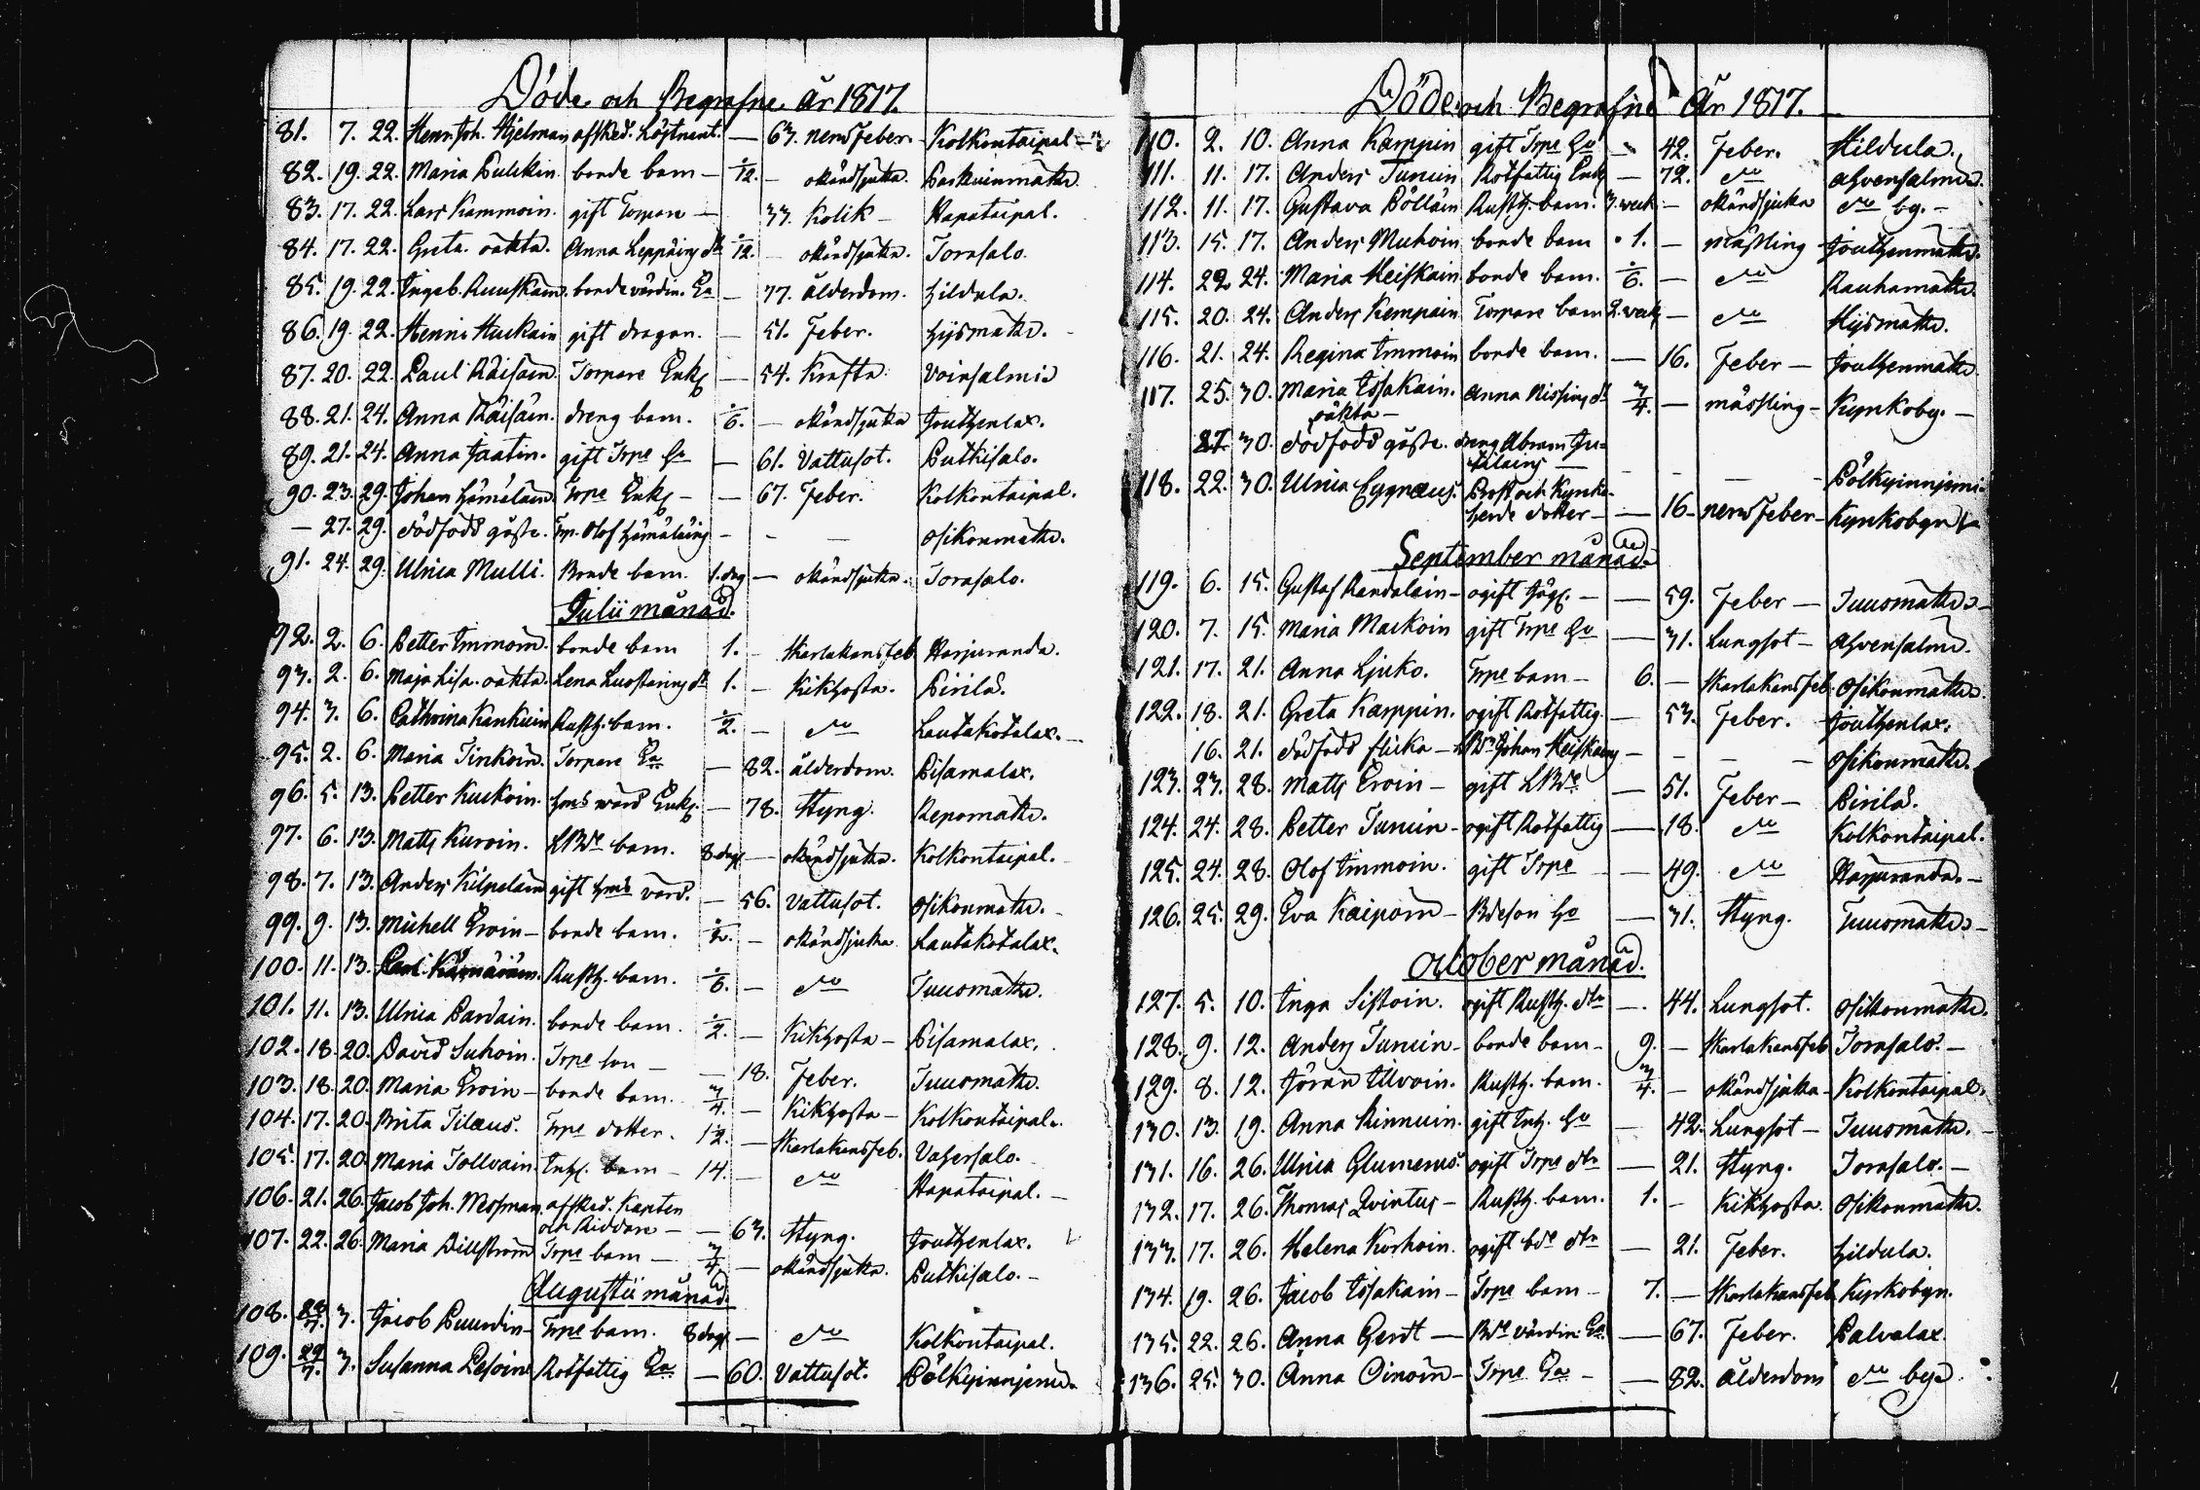 Döde och Begrafne År 1817.
81. 7. 22. Henr. Joh. Hjelman afsked. Löjtnant. — 63. nervfeber. Kolkontaipal —
82. 19. 22. Maria Pulckin. bonde barn — 1/12. — okändsjukd. Paskuinmäke
83. 17. 22. Lars Kammoin. gift Torpare — 33. Kolik — Hapataipal.
84. 17. 22. Greta. oäkta. Anna Leppäins dr 1/12. — okändsjukd. Torasalo.
85. 19. 22. Ingeb. Ruuskain. bondevärdin. Ea — 77. ålderdom. Hildula.
86. 19. 22. Henric Haukain gift dragon. — 51. Feber. Hijsmäke. -
87. 20. 22. Paul Räisäin. Torpare Enkl — 54. Kräfta. Voinsalmi
88. 21. 24. Anna Räisäin. dreng barn. 1/6. — okändsjukd Jouhenlax.
89. 21. 24. Anna Jaatin. gift Torpe Hu — 61. Vattusot. Putkisalo.
90. 23. 29. Johan Hämäläin Torpe Enkl — — 67. Feber. Kolkontaipal.
— 27. 29. dödfödd gosse. Trp. Olof Hämäläins — — — Osikonmäke.
91. 24. 29. Ulrica Mulli. Bonde barn. 1. dag — okändsjukd. Torasalo.
Julii månad.
92. 2. 6. Petter Immoin. bonde barn 1. — Skarlakansfeb. Harjuranda.
93. 2. 6. Maja Lisa. oäkta. Lena Luostarins dr 1. — Kikhosta. Pirilä.
94. 3. 6. Cathrina Kankuin Rusth. barn. 1/2. — do Lautakotalax. —
95. 2. 6. Maria Tirikoin. Torpare Ea — 82. ålderdom. Pisamalax.
96. 5. 13. Petter Kuckoin. Hms wärd Enkl. — 78. Styng. Repomäke.
97. 6. 13. Matts Kuroin. LBde barn. 8 dag — okändsjukd. Kolkontaipal.
98. 7. 13. Anders Kilpeläin gift Hms värd. — 56. Vattusot. Osikonmäke.
99. 9. 13. Michell Eroin — bonde barn. 1/2. — okändsjukd Lautakotalax.
100. 11. 13. Rusth. barn. 1/6. — do Tuusmäke.
101. 11. 13. Ulrica Pardain. bonde barn. 1/2. — Kikhosta — Pisamalax.
102. 18. 20. David Suhoin. Torpe son — — 18. Feber. Tuusmäke.
103. 18. 20. Maria Eroin — bonde barn. 3/4. — Kikhosta — Kolkontaipal.
104. 17. 20. Brita Tilæus. Torpe dotter. 12. — Skarlakansfeb. Vahersalo.
105. 17. 20. Maria Tollvain. Inhs. barn — 14. — do Hapataipal. —
106. 21. 26. Jacob Joh. Wesman afsked. Kapten
och Riddare — — 63. Styng. Jouhenlax.
107. 22. 26. Maria Dillström Torpe barn — 3/4. — okändsjukd. Putkisalo. —
Augustii månad.
108. 28/7. 3. Jacob Puurdin — Torpe barn. 8 dag — do Kolkontaipal.
109. 29/7. 3. Susanna Pesoin Rotfattig Ea — 60. Vattusot. Pölkyinnjemi.
Döde och Begrafne År 1817.
110. 2. 10. Anna Karppin gift Torpe Hu — 42. Feber. Hildula.
111. 11. 17. Anders Tunin Rotfattig Enkl — 72. do Ahvensalmi.
112. 11. 17. Gustava Pölläin Rusth. barn. 3. veck — okändsjukd do by. —
113. 15. 17. Anders Muhoin bonde barn 1. — mässling Jouhenmäke.
114. 22 24. Maria Heiskain bonde barn. 1/6. — do Rauhamäke.
115. 20. 24. Anders Kempain Torpare barn 2. veck — do Hijsmäke.
116. 21. 24. Regina Immoin bonde barn. — 16. Feber — Jouhenmäke
117. 25. 30. Maria Issakain. Anna Rissins dr 3/4. — mässling — Kyrkoby. —
oäkta —
27. 30. dödfödd gosse. dreng Abram Ju-
tilains — — — Pölkyinnjemi
118. 22. 30. Ulrica Cygnæus. Prost och Kyrko-
herde dotter — — 16. nervfeber — Kyrkobyn
September månad.
119. 6. 15. Gustaf Randalain — ogift Hägl. — — 59. Feber — Tuusmäke —
120. 7. 15. Maria Mackoin gift Torpe Hu — 31. Lungsot — Ahvensalmi.
121. 17. 21. Anna Ljuko. Torpe barn — 6. — Skarlakansfeb. Osikonmäke.
122. 18. 21. Greta Karppin. ogift Rotfattig. — 53. Feber. Jouhenlax.
16. 21. dödfödd flicka — LBdn Johan Heiskains — — — Osikonmäke.
123. 23. 28. Matts Eroin — gift LBde — 51. Feber — Pirilä.
124. 24. 28. Petter Tunin — ogift Rotfattig — 18. do Kolkontaipal.
125. 24. 28. Olof Immoin. gift Torpe — 49. do Harjuranda. —
126. 25. 29. Eva Kaipoin — Bdeson Hu — 31. Styng. Tuusmäke —
October månad.
127. 5. 10. Inga Sistoin. ogift Rusth. dtr — 44. Lungsot. Osikonmäke.
128. 9. 12. Anders Tunin — bonde barn — 9. — Skarlakansfeb Torasalo. —
129. 8. 12. Jöran Ulvoin. Rusth. barn. 3/4. — okändsjukd — Kolkontaipal.
130. 13. 19. Anna Kinnuin. gift Inh. Hu — 42. Lungsot — Tuusmäke. —
131. 16. 26. Ulrica Glumerus. ogift Torpe dtr — 21. Styng. Torasalo. —
132. 17. 26. Thomas Qvintus — Rusth. barn. 1. — Kikhosta. Osikonmäke.
133. 17. 26. Helena Korhoin. ogift bde dtr — 21. Feber. Hildula.
134. 19. 26. Jacob Issakain — Torpe barn — 7. — Skarlakansfeb. Kyrkobyn.
135. 22. 26. Anna Gerdt — Bde värdin: Ea — 67. Feber. Palvalax.
136. 25. 30. Anna Oinoin — Torpe Ea — — 82. ålderdom do by.